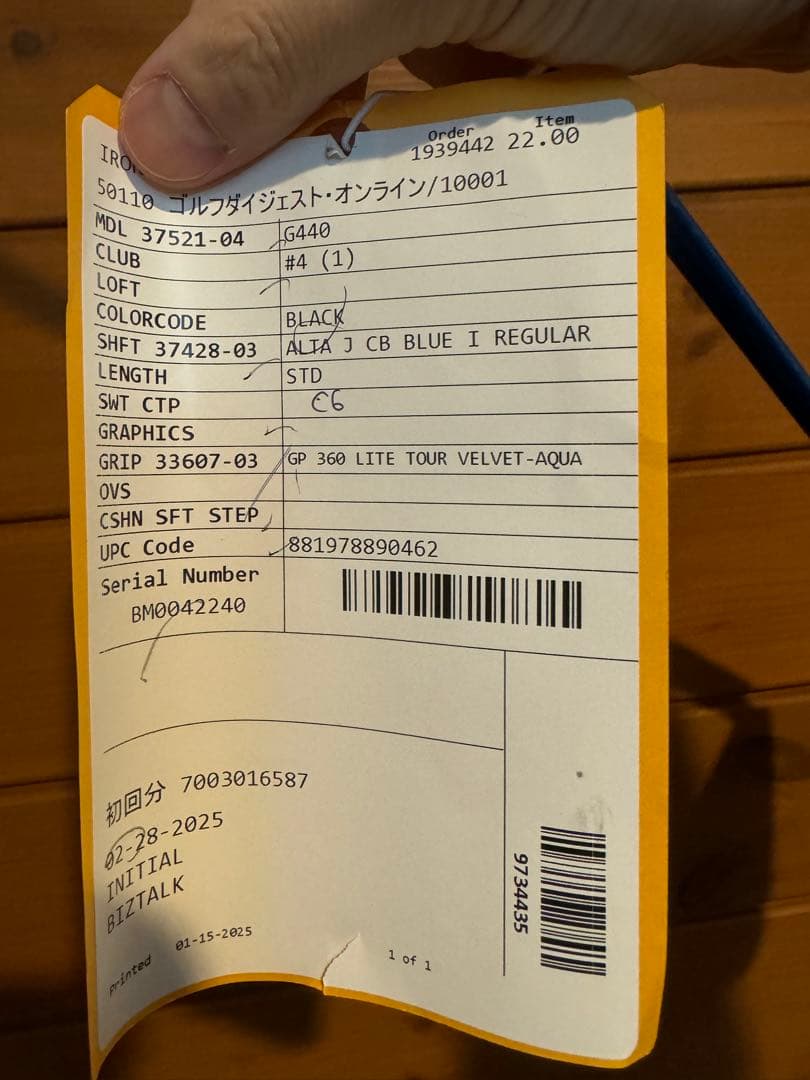 IRON
Order Item
1939442 22.00
50110 ゴルフダイジェスト・オンライン/10001
MDL 37521-04 G440
CLUB #4 (1)
LOFT
COLORCODE BLACK
SHFT 37428-03 ALTA J CB BLUE I REGULAR
LENGTH STD
SWT CTP C6
GRAPHICS
GRIP 33607-03 GP 360 LITE TOUR VELVET-AQUA
OVS
CSHN SFT STEP
UPC Code 881978890462
Serial Number
BM0042240
初回分 7003016587
02-28-2025
INITIAL
BIZTALK
Printed 01-15-2025
1 of 1
9734435